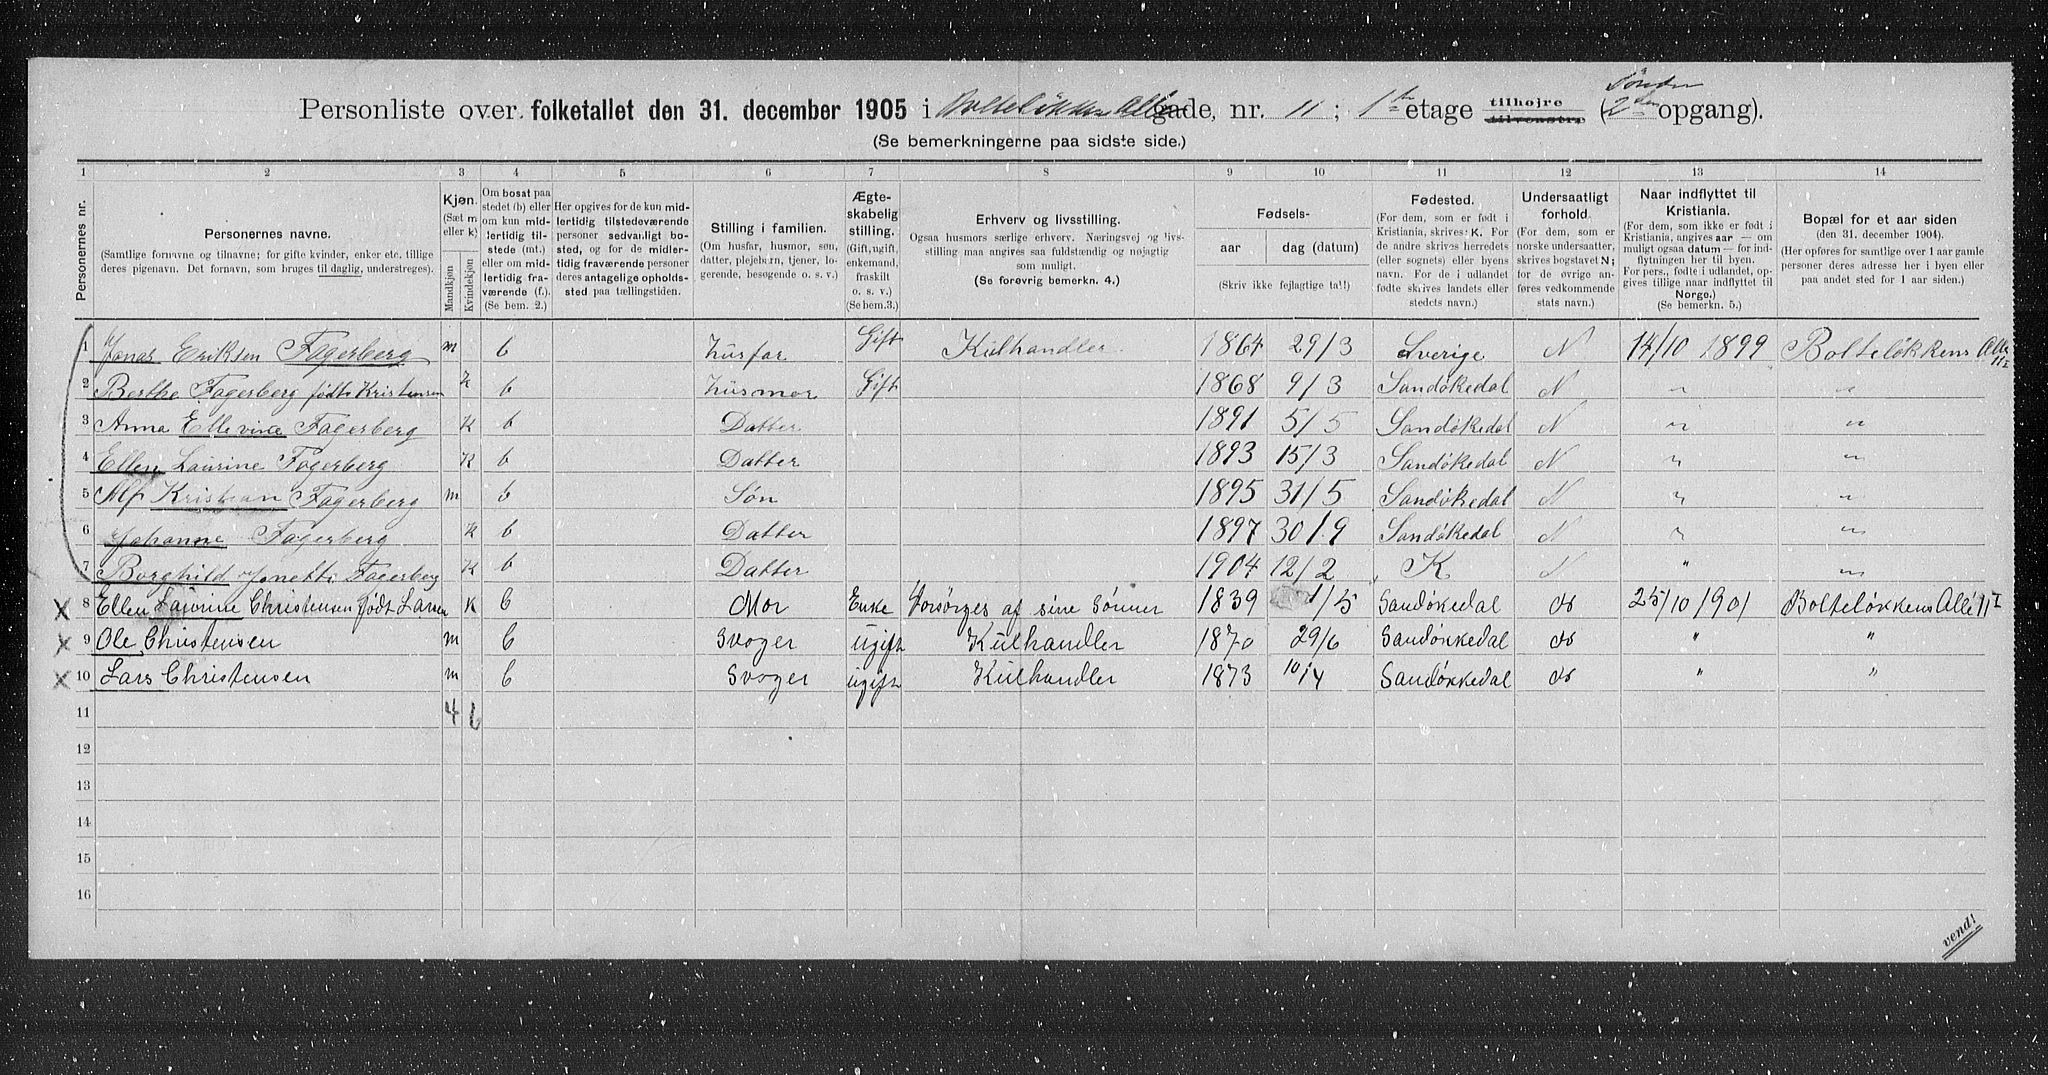 Personliste over folketallet den 31. december 1905 i Bolteløkkens Alle gade, nr. 11; 1ste etage tilhøjre tilvenstre (2den opgang).
Søndre
(Se bemerkningerne paa sidste side.)
1 2 3 4 5 6 7 8 9 10 11 12 13 14
Personernes nr.
Personernes navne.
(Samtlige fornavne og tilnavne; for gifte kvinder, enker etc. tillige
deres pigenavn. Det fornavn, som bruges til daglig, understreges).
Kjøn.
(Sæt m
eller k)
Mandkjøn
Kvindekjøn
Om bosat paa
stedet (b) eller
om kun mid-
lertidig til-
stede (mt.)
eller om mid-
lertidig fra-
værende (f.).
(Se bem. 2.)
Her opgives for de kun mid-
lertidig tilstedeværende
personer sedvanligt bo-
sted, og for de midler-
tidig fraværende personer
deres antagelige opholds-
sted paa tællingstiden.
Stilling i familien.
(Om husfar, husmor, søn,
datter, plejebarn, tjener, lo-
gerende, besøgende o. s. v.)
Ægte-
skabelig
stilling.
(Gift, ugift,
enkemand,
fraskilt
o. s. v.)
(Se bem. 3.)
Erhverv og livsstilling.
Ogsaa husmors særlige erhverv. Næringsvej og livs-
stilling maa angives saa fuldstændig og nøjagtig
som muligt.
(Se forøvrig bemerkn. 4.)
Fødsels-
aar
dag (datum)
(Skriv ikke fejlagtige tal!)
Fødested.
(For dem, som er født i
Kristiania, skrives: K. For
de andre skrives herredets
(eller sognets) eller byens
navn. For de i udlandet
fødte skrives landets eller
stedets navn.)
Undersaatligt
forhold.
(For dem, som er
norske undersaatter,
skrives bogstavet N;
for de øvrige an-
føres vedkommende
stats navn.)
Naar indflyttet til
Kristiania.
(For dem, som ikke er født i
Kristiania, angives aar — om
muligt ogsaa datum — for ind-
flytningen her til byen.
For pers., fødte i udlandet, op-
gives tillige naar indflyttet til
Norge.)
(Se bemerkn. 5.)
Bopæl for et aar siden
(den 31. december 1904).
(Her opføres for samtlige over 1 aar gamle
personer deres adresse her i byen eller
paa andet sted for 1 aar siden.)
1 Jonas Eriksen Fagerberg m b husfar Gift Kulhandler 1864 29/3 Sverige N 14/10 1899 Bolteløkkens Alle 11 I
2 Berthe Fagerberg fødte Kristensen k b husmor Gift 1868 9/3 Sandøkedal N " "
3 Anna Ellevine Fagerberg K b Datter 1891 5/5 Sandøkedal N " "
4 Ellen Laurine Fagerberg K b Datter 1893 15/3 Sandøkedal N " "
5 Alf Kristian Fagerberg m b Søn 1895 31/5 Sandøkedal N " "
6 Johanne Fagerberg K b Datter 1897 30/9 Sandøkedal N " "
7 Borghild Jonette Fagerberg K b Datter 1904 12/2 K N " "
X 8 Ellen Laurine Christensen født Larsen K b Mor Enke Forsørges af sine sønner 1839 1/5 Sandøkedal do 25/10 1901 Bolteløkkens Alle 11 I
X 9 Ole Christensen m b Svoger ugift Kulhandler 1870 29/6 Sandøkkedal do " "
X 10 Lars Christensen m b Svoger ugift Kulhandler 1873 10/4 Sandøkkedal do " "
11 4 6
12
13
14
15
16
vend!